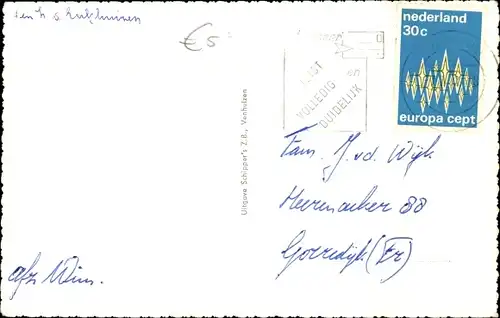 €5
nederland
30c
europa cept
JUIST
en
VOLLEDIG
DUIDELIJK
Uitgave Schipper's Z.B., Venhuizen
Fam. J. v.d. Wijk
Heerenacker 88
Gorredijk (Fr)
afz Wim.